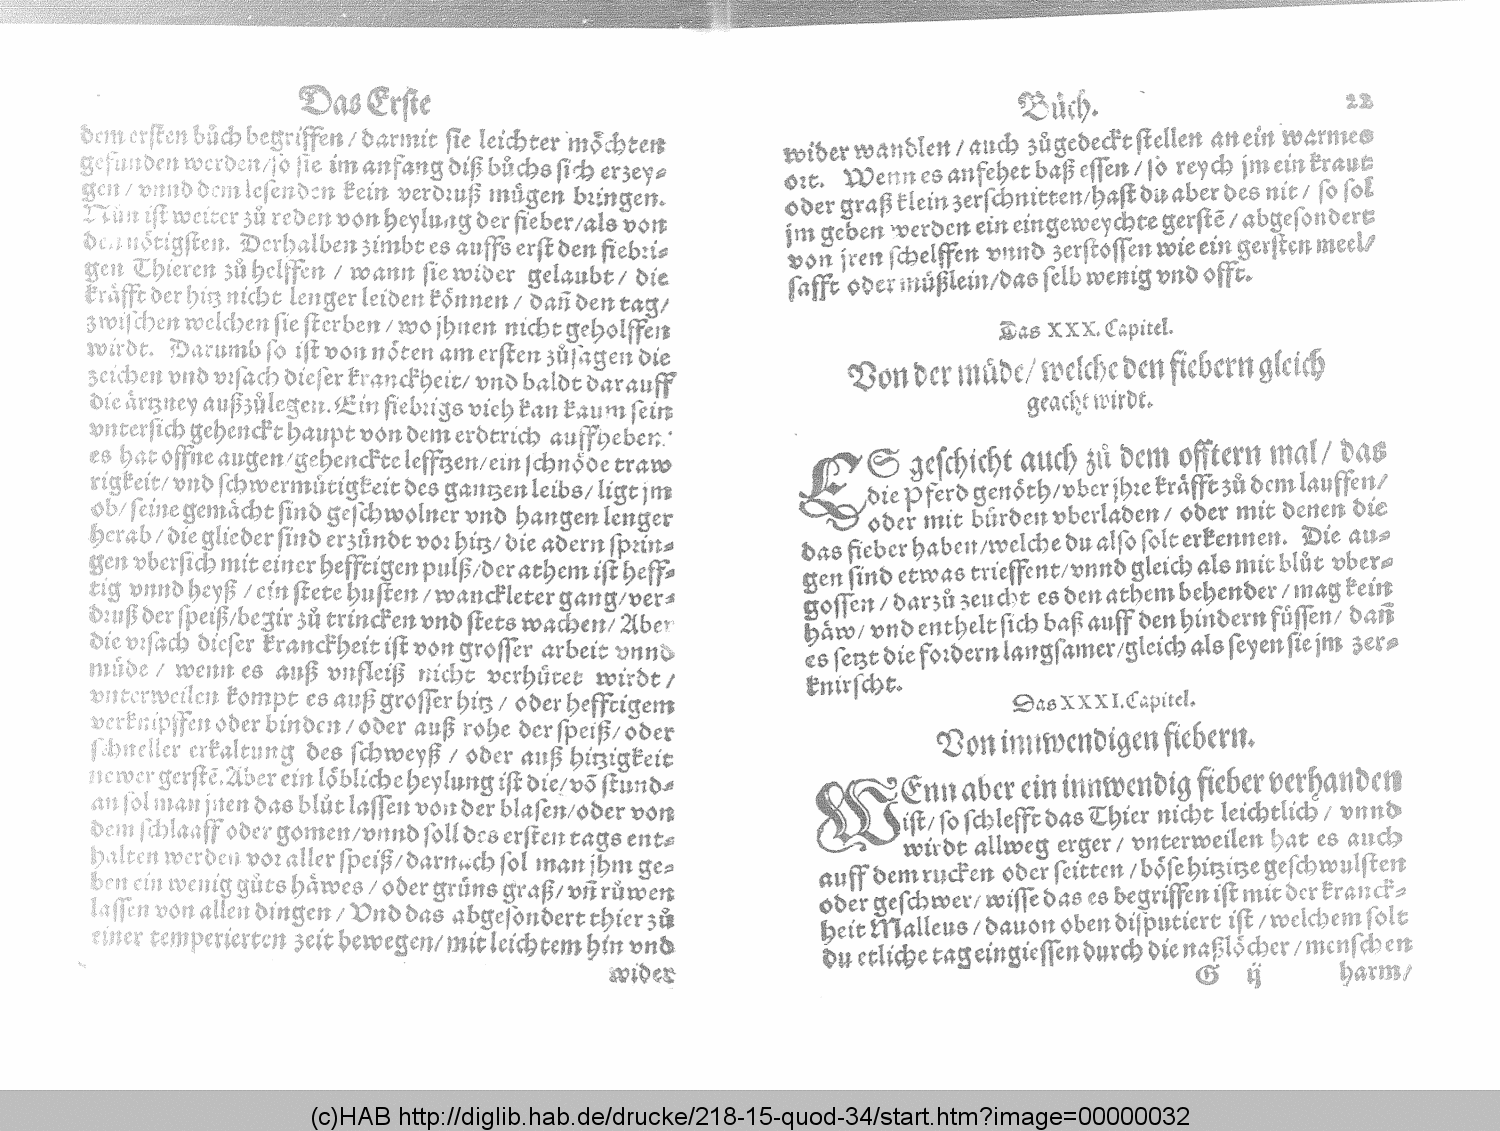 Das Erste
dem ersten bůch begriffen / darmit sie leichter möchten
gefunden werden / so sie im anfang diß bůchs sich erzey⸗
gen / vnnd dem lesenden kein verdruß mügen bringen.
Nůn ist weiter zů reden von heylung der fieber / als von
den nötigsten. Derhalben zimbt es auffs erst den fiebri⸗
gen Thieren zů helffen / wann sie wider gelaubt / die
kräfft der hitz nicht lenger leiden können / dañ den tag /
zwischen welchen sie sterben / wo jhnen nicht geholffen
wirdt. Darumb so ist von nöten am ersten zůsagen die
zeichen vnd vrsach dieser kranckheit / vnd baldt darauff
die ärtzney außzůlegen. Ein fiebrigs vieh kan kaum sein
vntersich gehenckt haupt von dem erdtrich auffheben.
es hat offne augen / gehenckte lefftzen / ein schnöde traw
rigkeit / vnd schwermůtigkeit des gantzen leibs / ligt jm
ob / seine gemächt sind geschwolner vnd hangen lenger
herab / die glieder sind erzündt vor hitz / die adern sprin⸗
gen vbersich mit einer hefftigen pulß / der athem ist heff⸗
tig vnnd heyß / ein stete husten / wanckleter gang / ver⸗
druß der speiß / begir zů trincken vnd stets wachen / Aber
die vrsach dieser kranckheit ist von grosser arbeit vnnd
můde / wenn es auß vnfleiß nicht verhůtet wirdt /
vnterweilen kompt es auß grosser hitz / oder hefftigem
verknipffen oder binden / oder auß rohe der speiß / oder
schneller erkaltung des schweyß / oder auß hitzigkeit
newer gerstē. Aber ein löbliche heylung ist die / vō stund⸗
an sol man jnen das blůt lassen von der blasen / oder von
dem schlaaff oder gomen / vnnd soll des ersten tags ent⸗
halten werden vor aller speiß / darnach sol man jhm ge⸗
ben ein wenig gůts häwes / oder grůns graß / vñ růwen
lassen von allen dingen / Vnd das abgesondert thier zů
einer temperierten zeit bewegen / mit leichtem hin vnd
wider
Bůch. 22
wider wandlen / auch zůgedeckt stellen an ein warmes
ort. Wenn es anfehet baß essen / so reych jm ein kraut
oder graß klein zerschnitten / hast du aber des nit / so sol
jm geben werden ein eingeweychte gerstē / abgesondert
von jren schelffen vnnd zerstossen wie ein gersten meel /
safft oder můßlein / das selb wenig vnd offt.
Das XXX. Capitel.
Von der můde / welche den fiebern gleich
geacht wirdt.
ES geschicht auch zů dem offtern mal / das
die Pferd genöth / vber jhre kräfft zů dem lauffen /
oder mit bürden vberladen / oder mit denen die
das fieber haben / welche du also solt erkennen. Die au⸗
gen sind etwas trieffent / vnnd gleich als mit blůt vber⸗
gossen / darzů zeucht es den athem behender / mag kein
häw / vnd enthelt sich baß auff den hindern füssen / dañ
es setzt die fordern langsamer / gleich als seyen sie jm zer⸗
knirscht.
Das XXXI. Capitel.
Von innwendigen fiebern.
WEnn aber ein innwendig fieber verhanden
ist / so schlefft das Thier nicht leichtlich / vnnd
wirdt allweg erger / vnterweilen hat es auch
auff dem rucken oder seitten / böse hitzitze geschwulsten
oder geschwer / wisse das es begriffen ist mit der kranck⸗
heit Malleus / dauon oben disputiert ist / welchem solt
du etliche tag eingiessen durch die naßlöcher / menschen
G ij harm /
(c)HAB http://diglib.hab.de/drucke/218-15-quod-34/start.htm?image=00000032